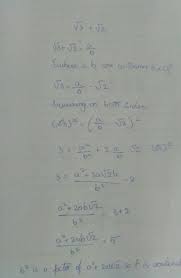 √3 + √2
√3 + √2 = a/b
a, b are
√3 = a/b - √2
Squaring on both sides
(√3)² = (a/b - √2)²
3 = a²/b² + 2
3 = a² + 2a√2b / b² - 2
a² + 2ab√2 / b² = 3 + 2
a² + 2ab√2 / b² = 5
b² is a factor of a² + 2ab√2